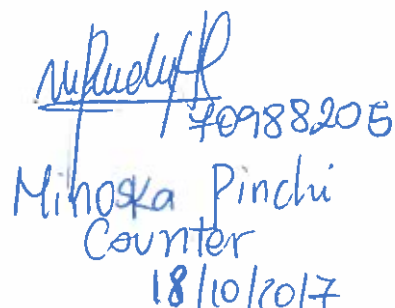 70988205
Minoska Pinchi
Counter
18/10/2017